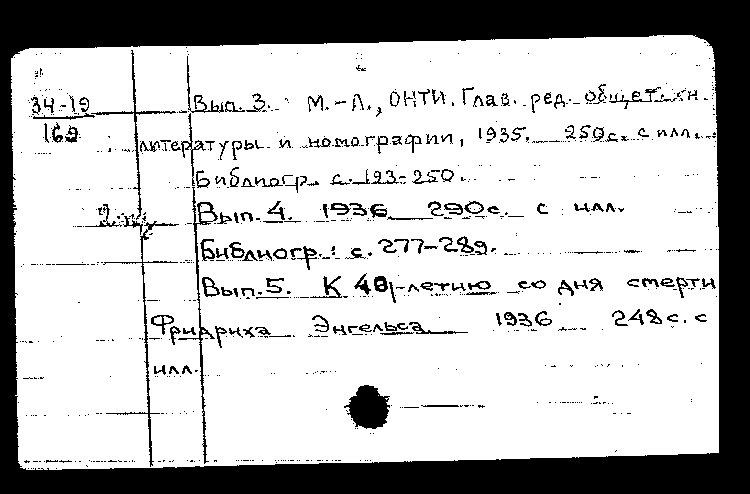 34-19
169
Вып. 3. М.-Л., ОНТИ. Глав. ред. общет.
литературы и номографии, 1935. 250с. с илл.
Библиогр. с. 193-250.
Вып. 4. 1936 290с. с илл.
Библиогр.: с. 277-289.
Вып. 5. К 40-летию со дня смерти
Фридриха Энгельса 1936 248с. с
илл.